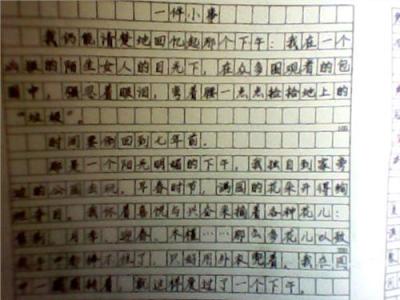 一件小事
我仍能清楚地回忆起那个下午：我在一个
凶狠的陌生女人的目光下，在众多围观看的包
围中，强忍着眼泪，弯着腰一点点捡拾地上的
“垃圾”。
时间要倒回到七年前。
那是一个阳光明媚的下午，我独自到家旁
边的公园去玩。早春时节，满园的花朵开得绚
我怀着喜悦与兴奋来摘着各种花儿：
月季、迎春、木槿……那么多花儿
我在园
中一圈圈转着，就这样度过了一个下午。